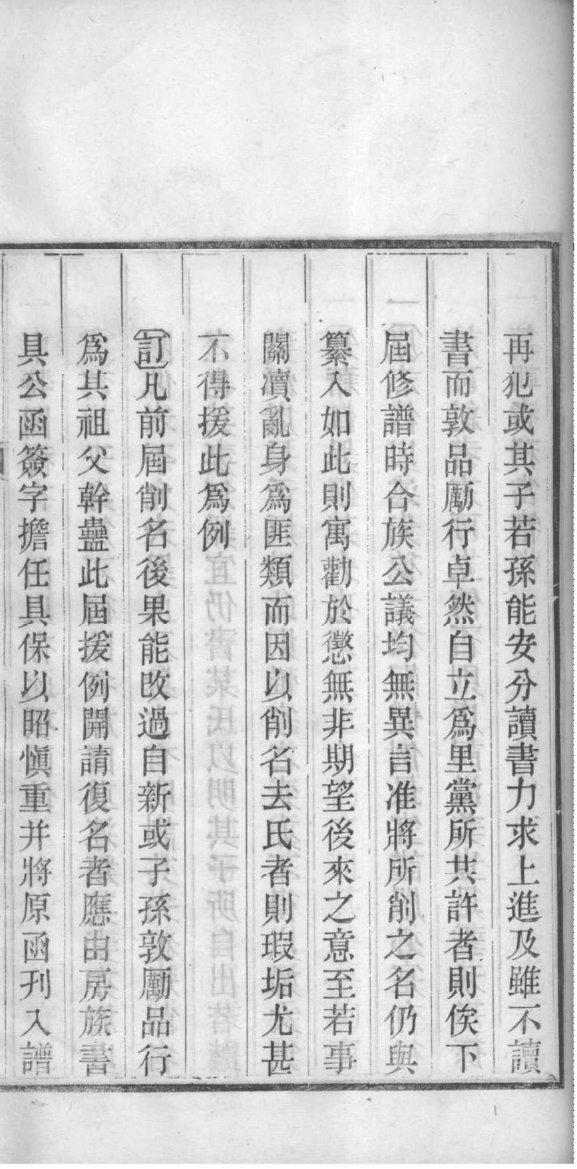 再犯或其子若孫能安分讀書力求上進及雖不讀
書而敦品勵行卓然自立爲里黨所共許者則俟下
屆修譜時合族公議均無異言准將所削之名仍與
纂入如此則寓勸於懲無非期望後來之意至若事
關瀆亂身爲匪類而因以削名去氏者則瑕垢尤甚
不得援此爲例
訂凡前屆削名後果能改過自新或子孫敦勵品行
爲其祖父幹蠱此屆援例開請復名者應由房族書
具公函簽字擔任具保以昭愼重并將原函刋入譜